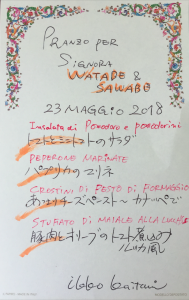 PRANZO PER
SIGNORA
WATABE &
SAWABE
23 MAGGIO 2018
Insalata di Pomodoro e pomodorini
トマトとミニトマトのサラダ
PEPERONE MARINATE
パプリカのマリネ
CROSTINO DI PESTO DI FORMAGGIO
チーズペースト
STUFATO DI MAIALE ALLA LUCCHESE
豚肉とオリーブのトマト煮込み
ルッカ風